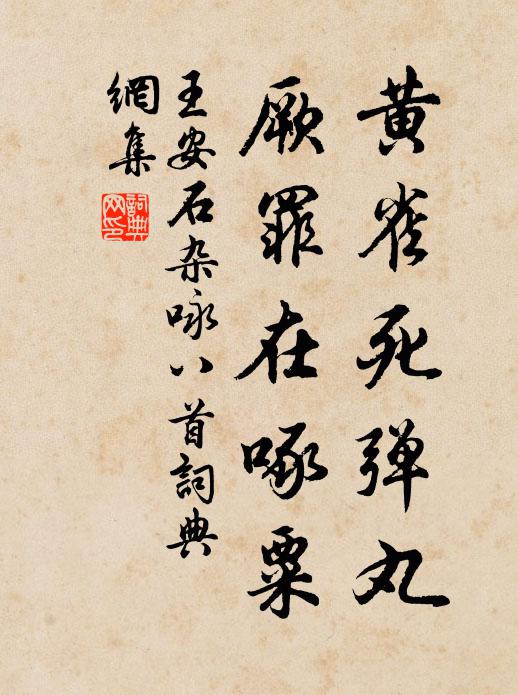 黄雀死弹丸
厥罪在啄粟
王安石杂咏八首詞典
網集
詞典
网印